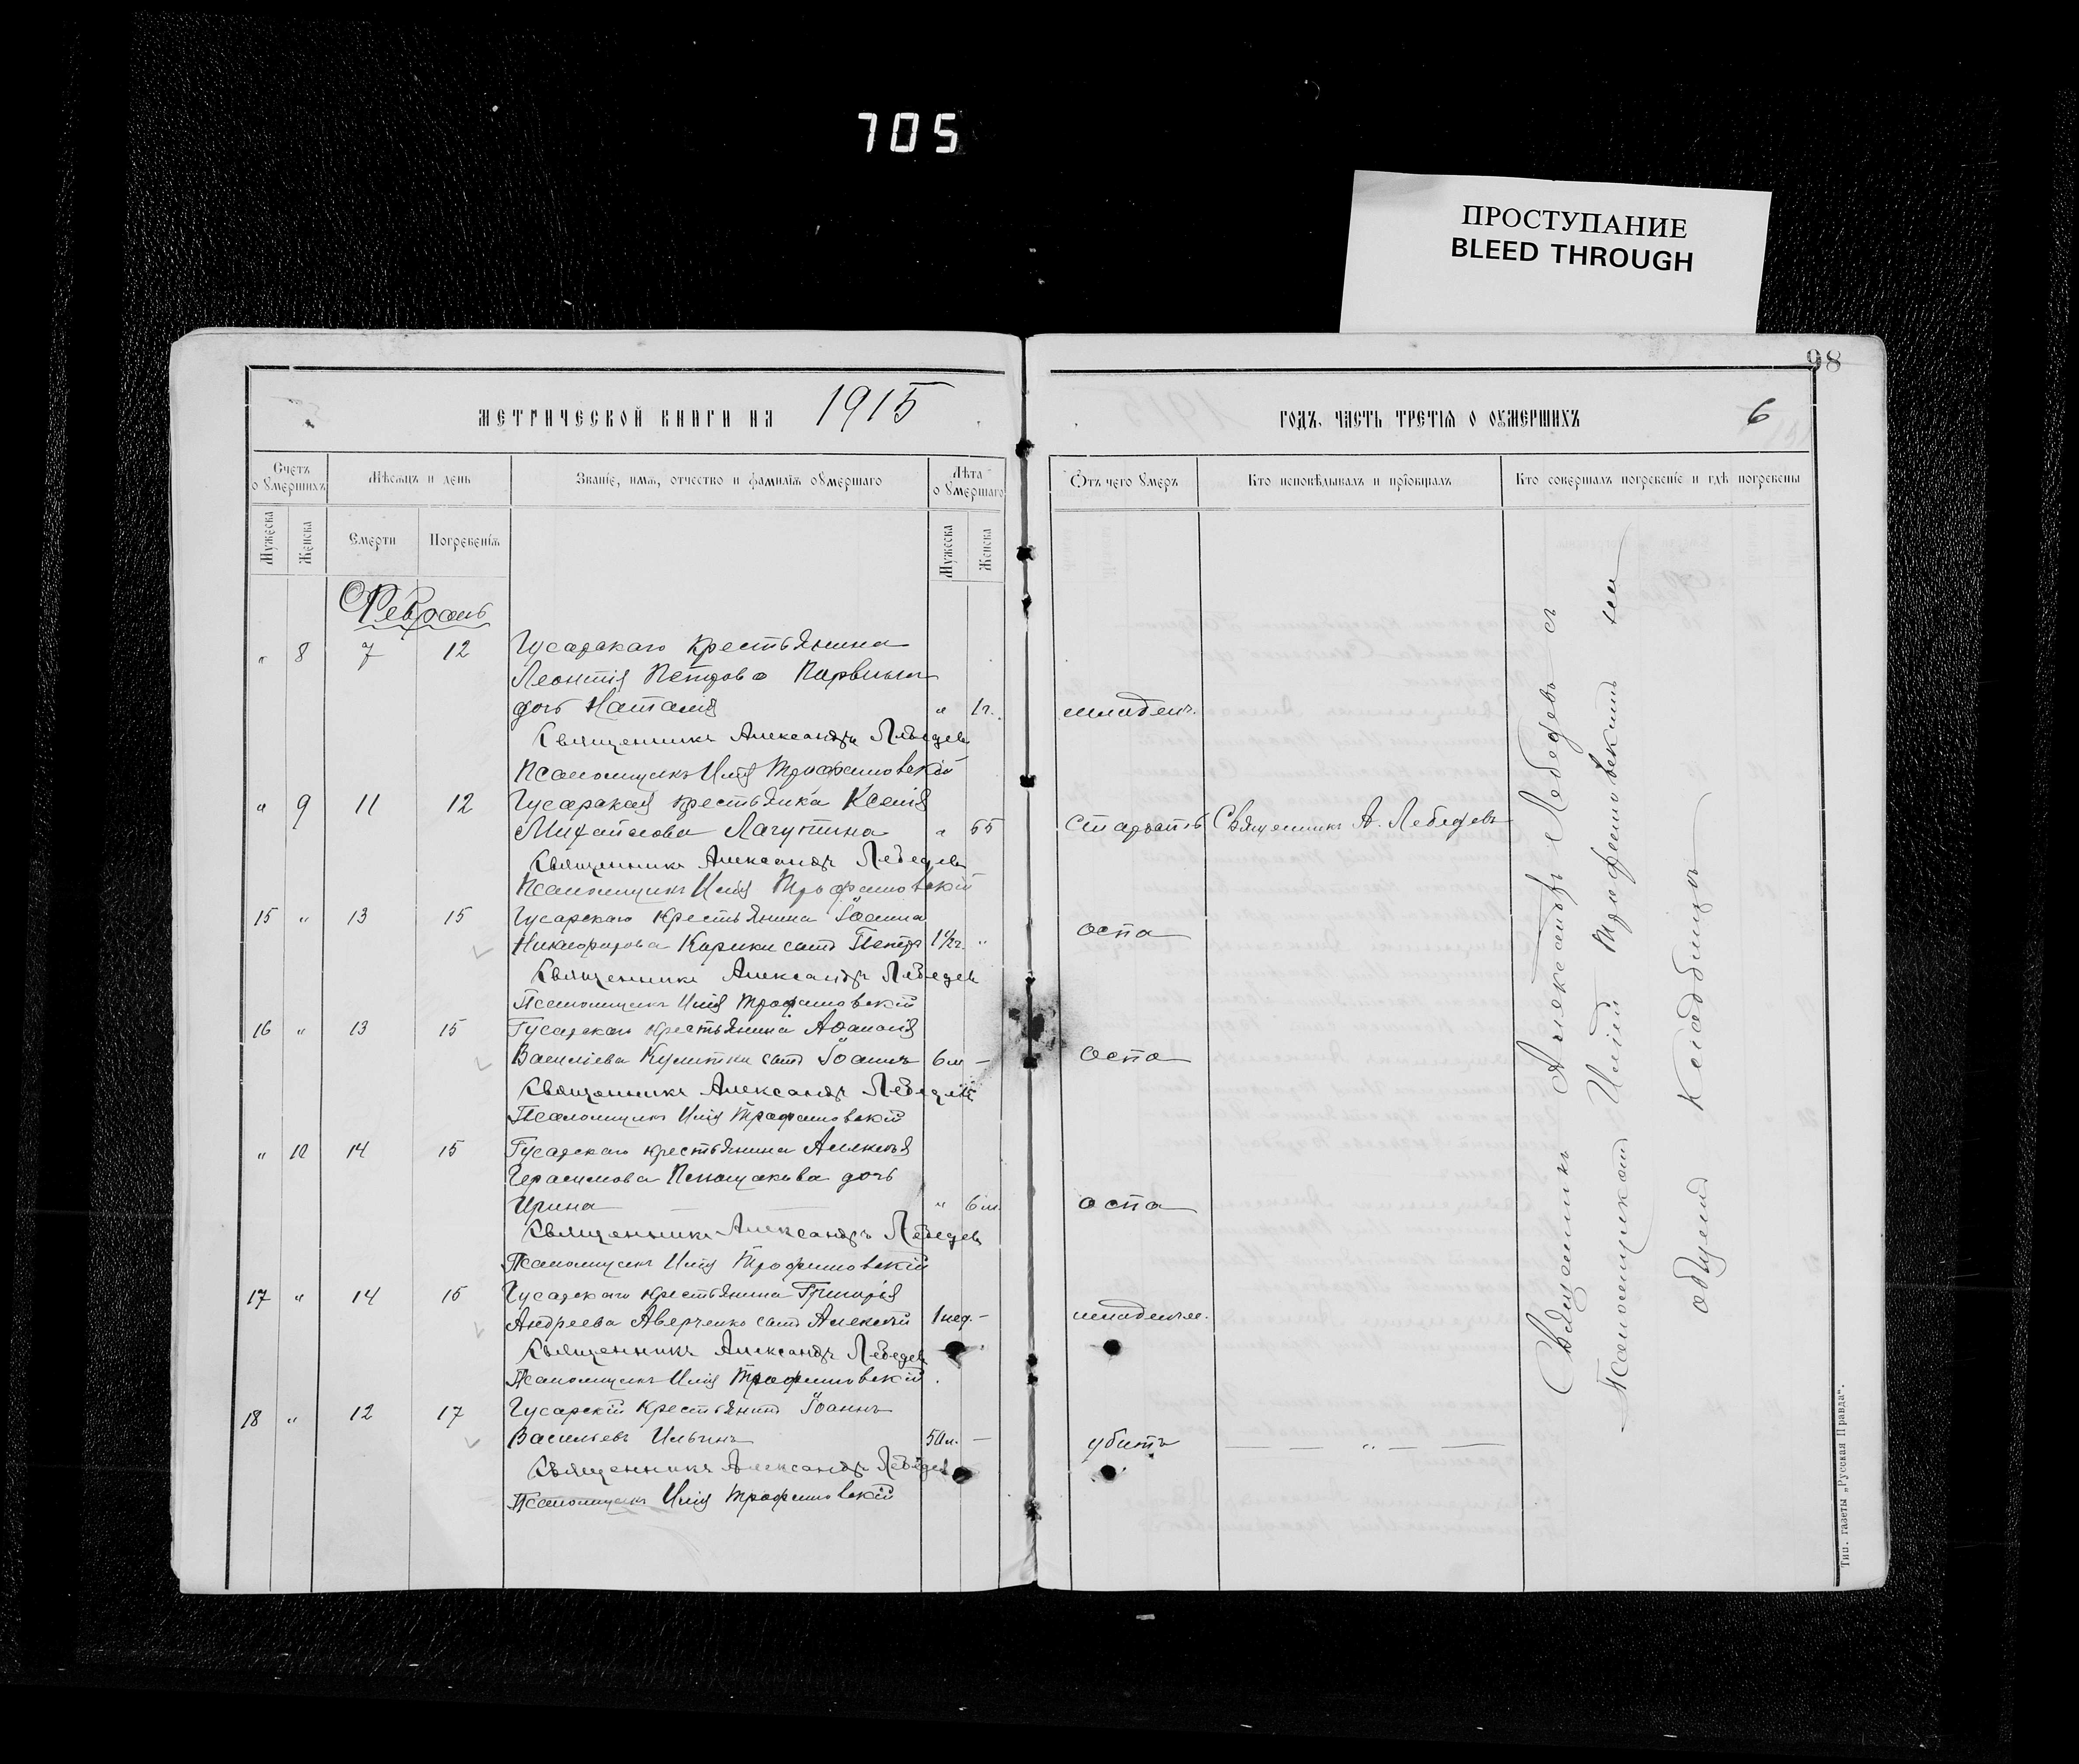 705
ПРОСТУПАНИЕ
BLEED THROUGH
98
МЕТРИЧЕСКОЙ КНИГИ НА 1915
ГОДЪ, ЧАСТЬ ТРЕТІѦ О ОУМЕРШИХЪ
6
Счетъ о Умершихъ
Мѣсяцъ и день
Званіе, имя, отчество и фамилія оумершаго
Лѣта о Умершаго
Отъ чего Умеръ
Кто исповѣдывалъ и пріобщалъ
Кто совершалъ погребеніе и гдѣ погребены
Мужеска
Женска
Смерти
Погребенія
Мужеска
Женска
Февраль
" 8 7 12 Гусарскаго крестьянина
Леонтія Петрова
дочь Наталія " 1 г. младенч.
Священникъ Александръ Лебедевъ
Псаломщикъ Илія Трофимовскій
" 9 11 12 Гусарская крестьянка Ксенія
Михайлова Лагутина " 55 старость Священникъ А. Лебедевъ
Священникъ Александръ Лебедевъ
Псаломщикъ Илія Трофимовскій
15 " 13 15 Гусарскаго крестьянина Іоанна
Никифорова Карики сынъ Петръ 1½ г. " оспа
Священникъ Александръ Лебедевъ
Псаломщикъ Илія Трофимовскій
16 " 13 15 Гусарскаго крестьянина
Васильева Кулитки сынъ Іоаннъ 6 м — оспа
Священникъ Александръ Лебедевъ
Псаломщикъ Илія Трофимовскій
" 10 14 15 Гусарскаго крестьянина Алексѣя
Герасимова дочь
Ирина " 6 м. оспа
Священникъ Александръ Лебедевъ
Псаломщикъ Илія Трофимовскій
17 " 14 16 Гусарскаго крестьянина Григорія
Андреева Аверченко сынъ Алексѣй 1 нед. —
Священникъ Александръ Лебедевъ
Псаломщикъ Илія Трофимовскій
18 " 12 17 Гусарскій крестьянинъ Іоаннъ
Васильевъ Ильинъ 50 л. — убитъ — — " — —
Священникъ Александръ Лебедевъ
Псаломщикъ Илія Трофимовскій
Священникъ Александръ Лебедевъ съ
Псаломщикомъ Иліей Трофимовскимъ на
общемъ кладбищѣ
Тип. газеты „Русская Правда".